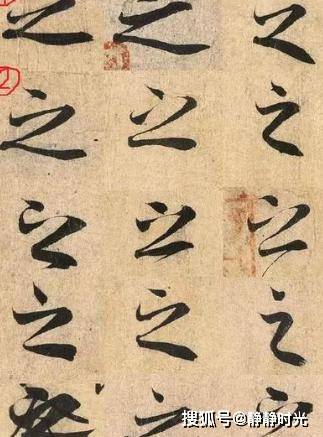 之 之 之
② 之 之 之
之 之 之
之 之 之
搜狐号@静静时光